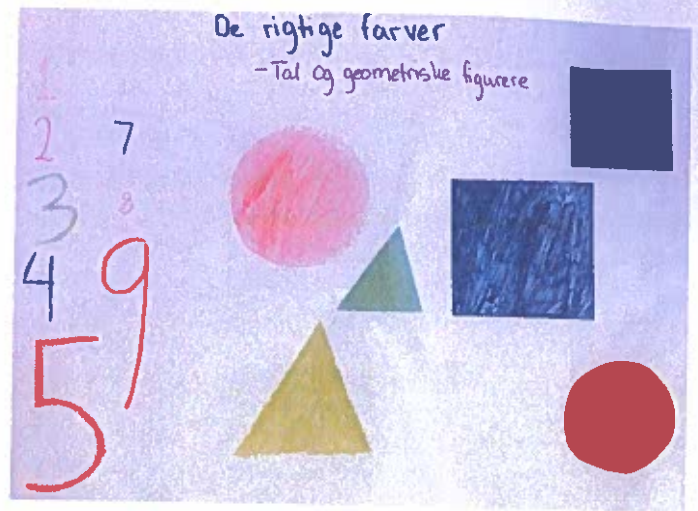 De rigtige farver
- Tal og geometriske figurere
1
2 7
3 8
4 9
5